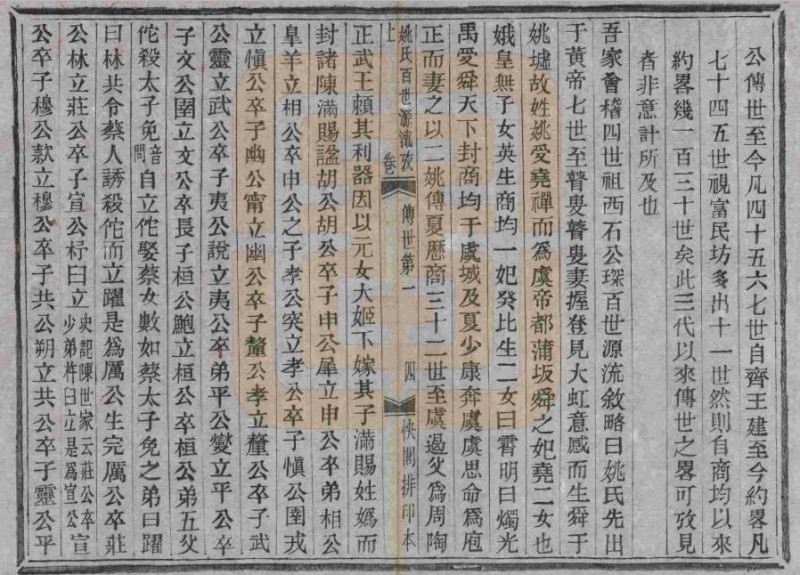 公傳世至今凡四十五六七世自齊王建至今約畧凡
七十四五世視富民坊多出十一世然則自商均以來
約畧幾一百三十世矣此三代以來傳世之畧可攷見
者非意計所及也
吾家會稽四世祖西石公琛百世源流敘略曰姚氏先出
于黃帝七世至瞽叟瞽叟妻握登見大虹意感而生舜于
姚墟故姓姚受堯禪而爲虞帝都蒲坂舜之妃堯二女也
娥皇無子女英生商均一妃癸比生二女曰霄明曰燭光
禹受舜天下封商均于虞城及夏少康奔虞虞思命爲庖
正而妻之以二姚傳夏歷商三十二世至虞遏父爲周陶
姚氏百世源流攷 卷上 傳世第一 四 快閣排印本
正武王頼其利器因以元女大姬下嫁其子滿賜姓嬀而
封諸陳滿賜諡胡公胡公卒子申公犀立申公卒弟相公
皋羊立相公卒申公之子孝公突立孝公卒子愼公圉戎
立愼公卒子幽公甯立幽公卒子釐公孝立釐公卒子武
公靈立武公卒子夷公說立夷公卒弟平公燮立平公卒
子文公圉立文公卒長子桓公鮑立桓公卒桓公弟五父
佗殺太子免音問自立佗娶蔡女數如蔡太子免之弟曰躍
曰林共令蔡人誘殺佗而立躍是爲厲公生完厲公卒莊
公林立莊公卒子宣公杵臼立史記陳世家云莊公卒少弟杵臼立是爲宣公宣
公卒子穆公款立穆公卒子共公朔立共公卒子靈公平